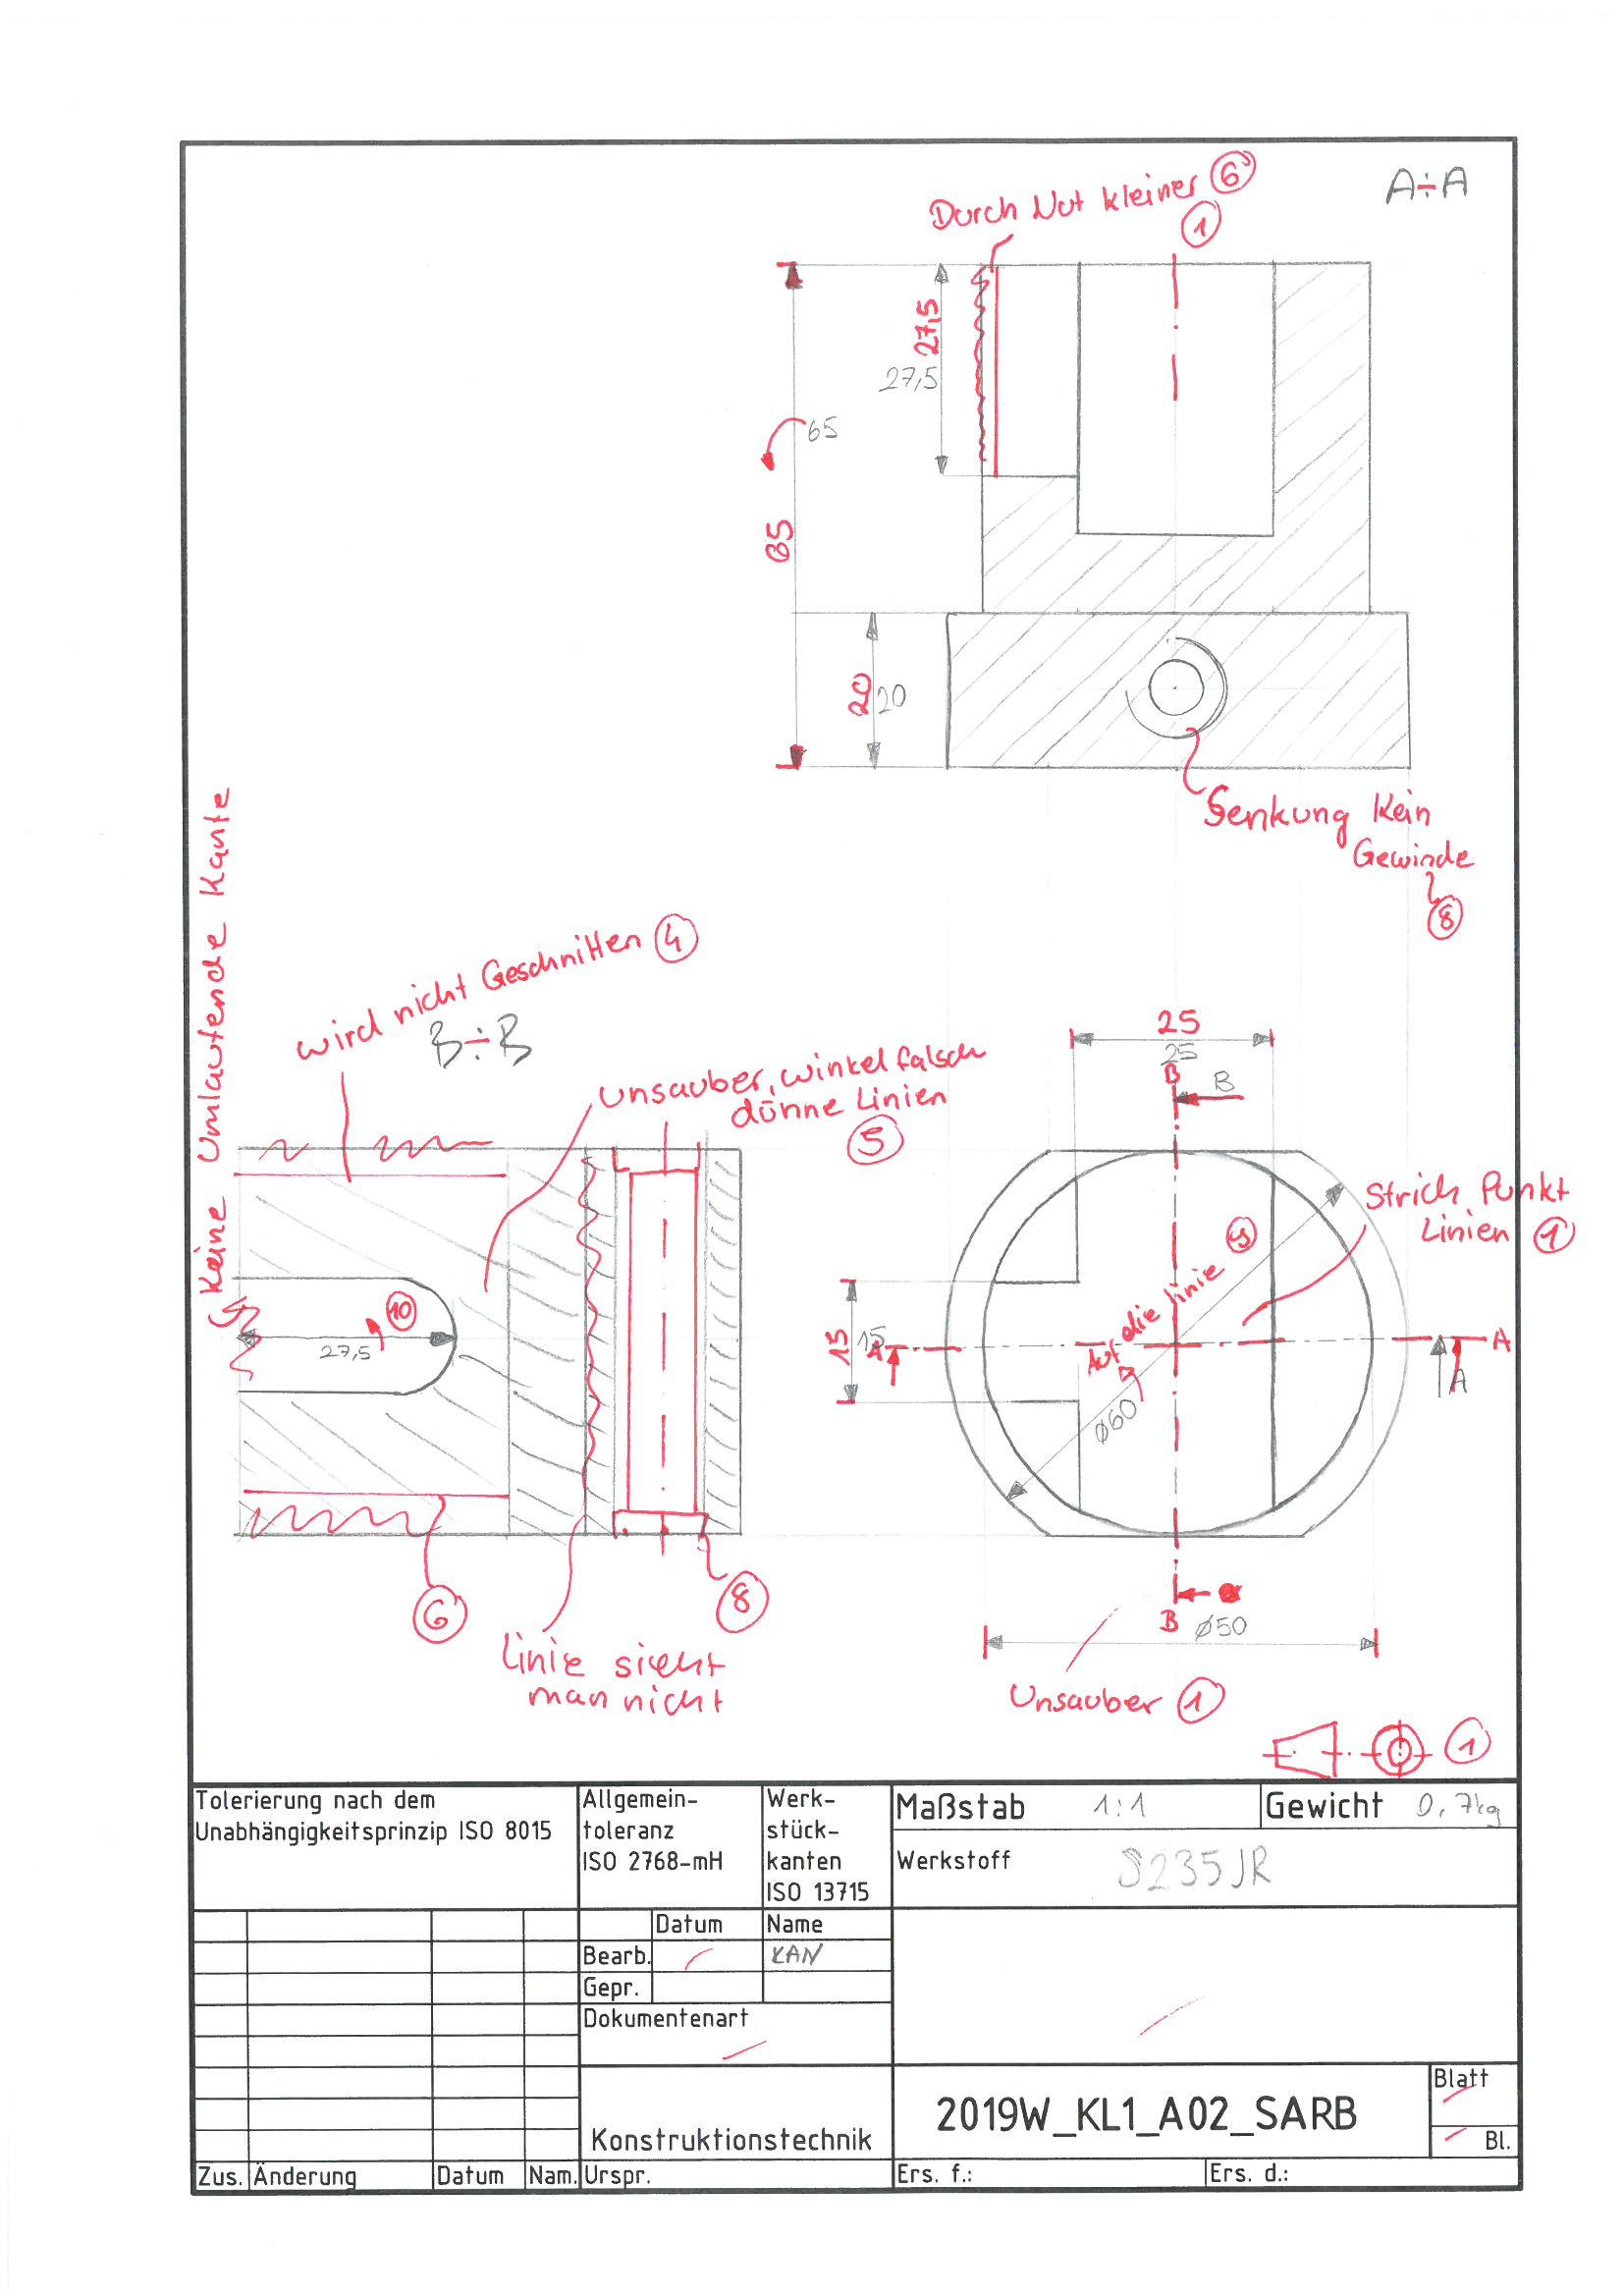 A÷A
Durch Nut kleiner 6
1
27,5
27,5
65
65
20
20
Senkung Kein
Gewinde
8
Keine Umlaufende Kante
wird nicht Geschnitten 4
B÷B
unsauber, winkel falsch
dünne Linien
5
10
27,5
6
8
Linie sieht
man nicht
25
25
B
B
Strich Punkt
Linien 1
Auf die linie
15
15
A
A
A
Ø60
B
Ø50
Unsauber 1
1
Tolerierung nach dem
Unabhängigkeitsprinzip ISO 8015
Allgemein-
toleranz
ISO 2768-mH
Werk-
stück-
kanten
ISO 13715
Maßstab 1:1
Gewicht 0,7kg
Werkstoff S235JR
Datum Name
Bearb. KAN
Gepr.
Dokumentenart
Konstruktionstechnik
2019W_KL1_A02_SARB
Blatt
Bl.
Zus. Änderung Datum Nam. Urspr. Ers. f.: Ers. d.: